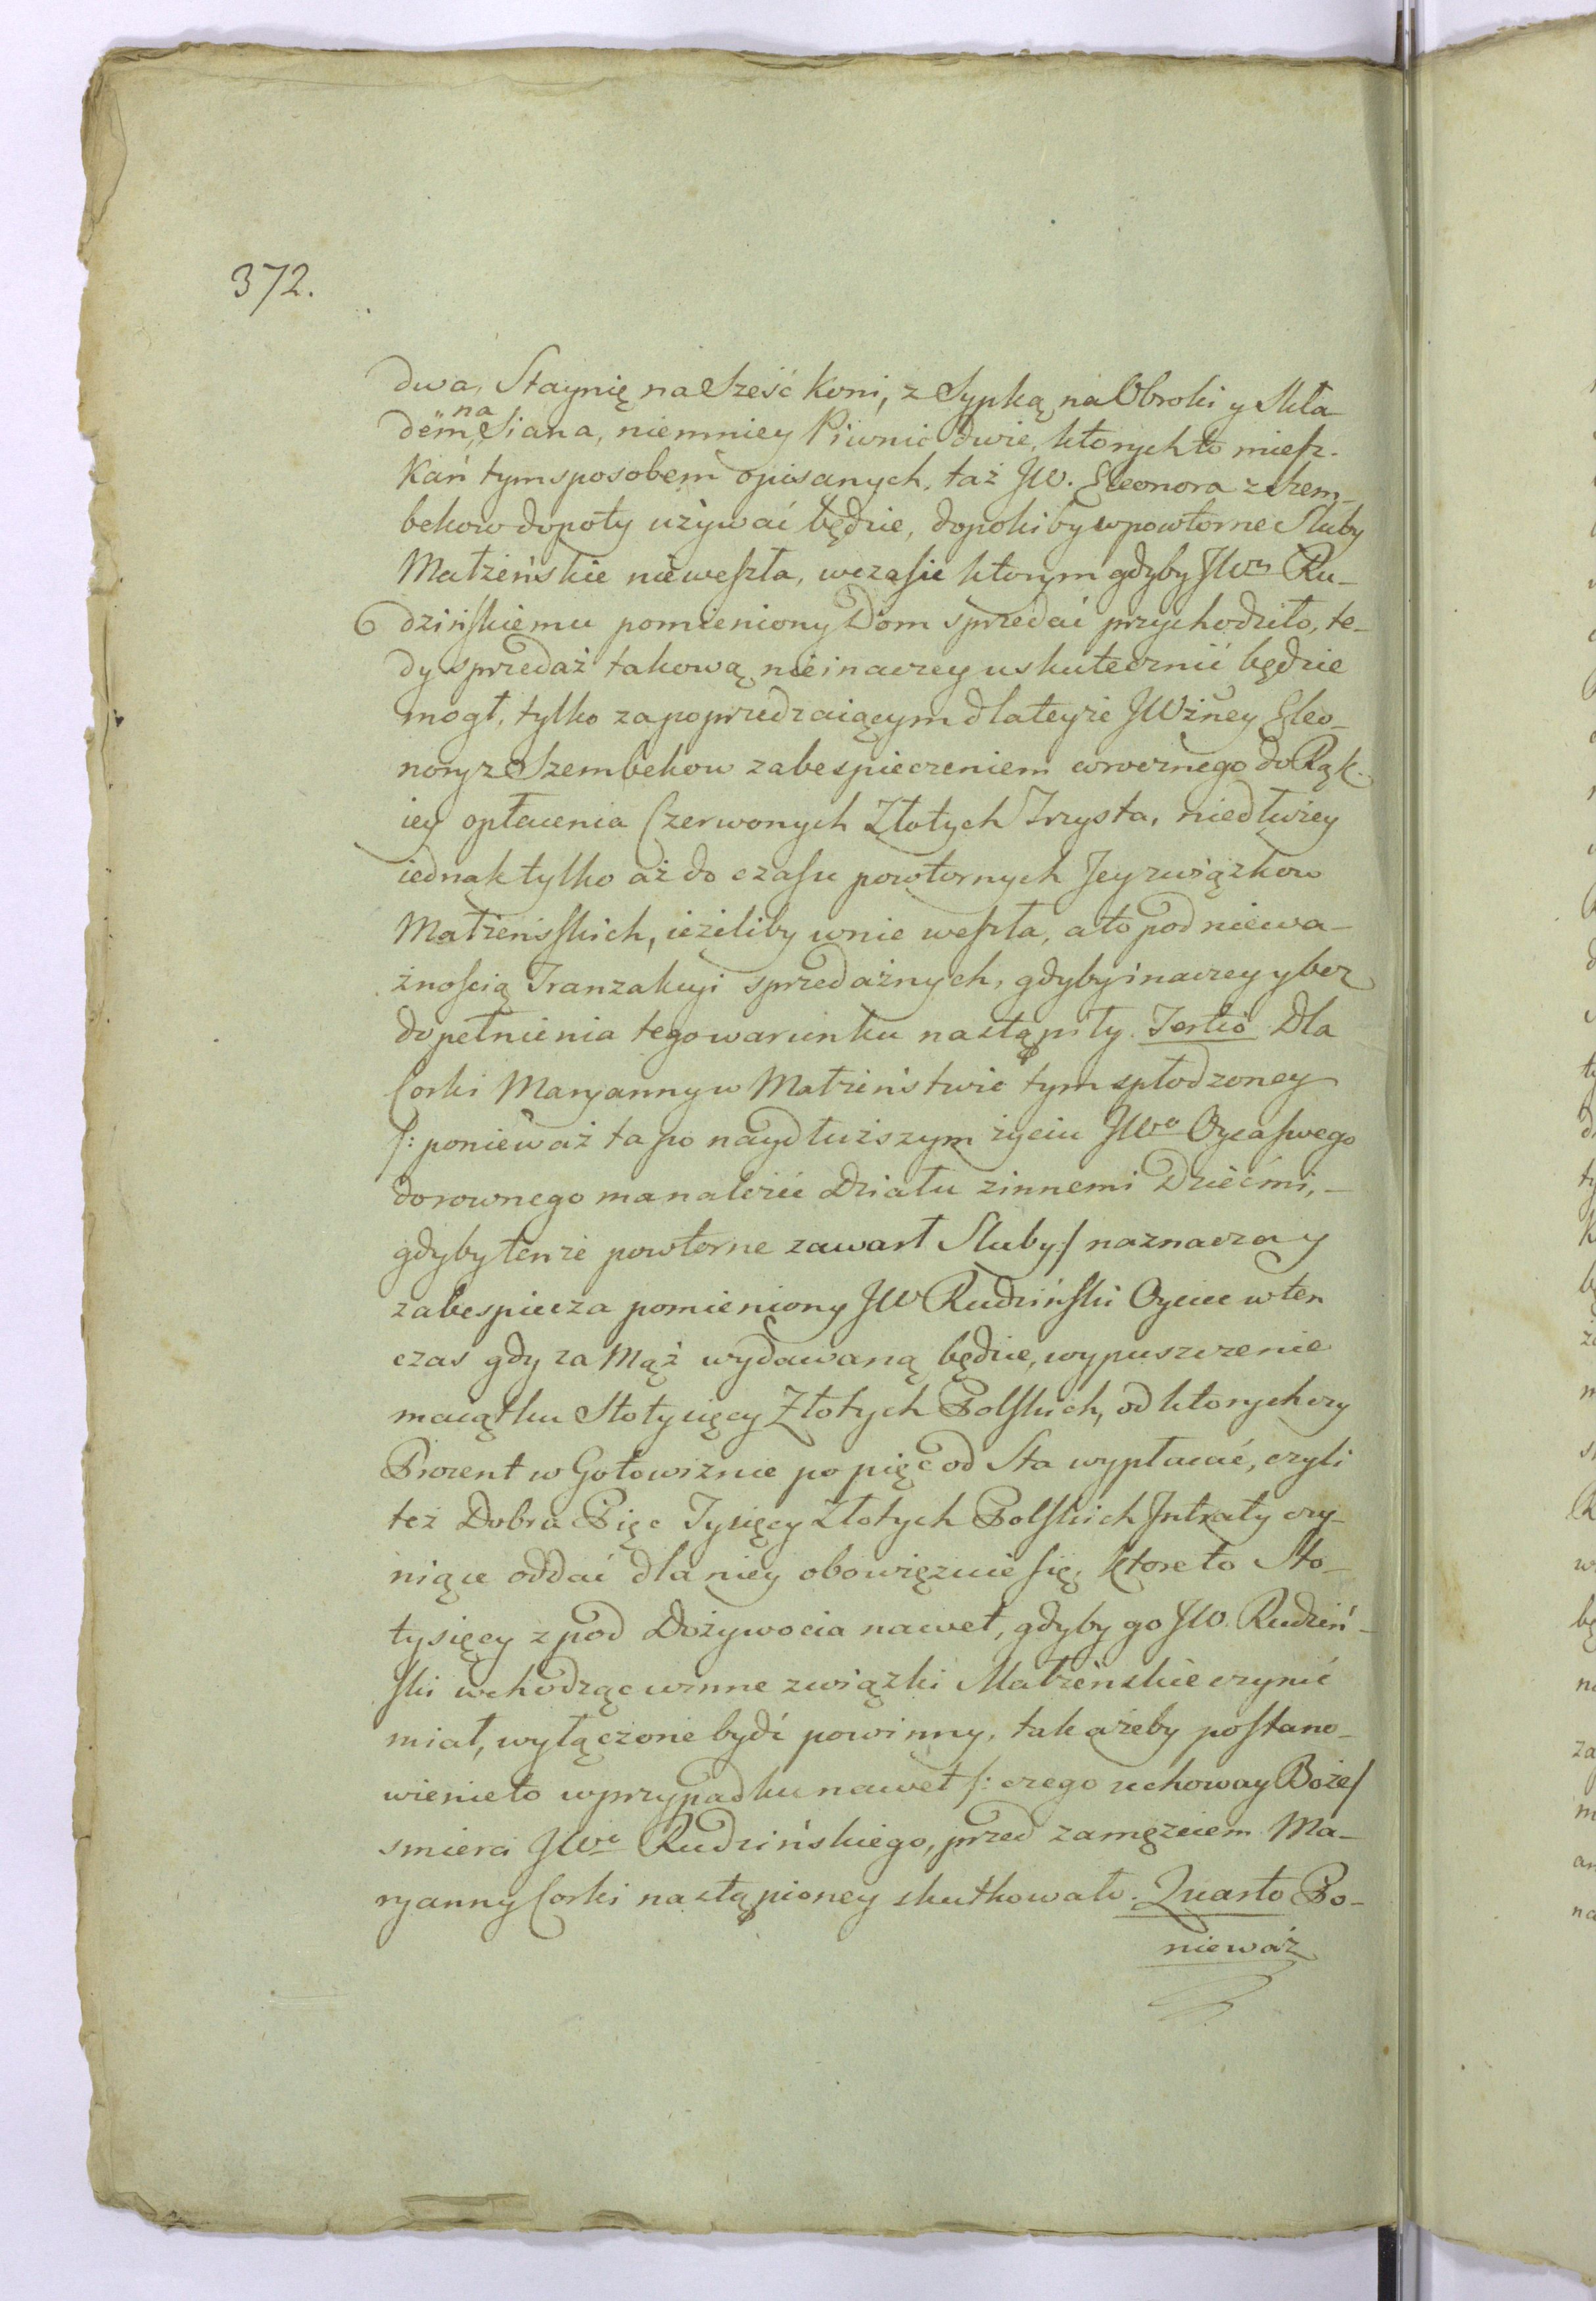 372.
dwa, Staynię na Sześć Koni, z Sypką na Obroki y Skła
dem na Siana, niemniey Piwnic dwie, ktorych to miesz-
kań tym sposobem opisanych, taż JW. Eleonora z Szem-
bekow dopoty używać będzie, dopoki by w powtorne Sluby
Małżeńskie nieweszła, w czasie ktorym gdyby JWmu Ru-
dzińskiemu pomieniony Dom sprzedać przychodziło, te-
dy sprzedaż takową nieinaczey uskutecznić będzie
mogł, tylko za poprzedzaiącym dla teyże JWżney Eleo-
nory z Szembekow zabespieczeniem corocznego do Rąk
iey opłacenia Czerwonych Złotych Trzysta, niedłużey
iednak tylko aż do czasu powtornych Jey związkow
Małżeńskich, ieżeliby w nie weszła, a to pod niewa-
żnością Tranzakcyi sprzedażnych, gdyby inaczey y bez
dopełnienia tego warunku nastąpiły. Tertio Dla
Corki Maryanny w Małżeństwie tym spłodzoney
/: ponieważ ta po naydłuższym życiu JWo Oyca swego
do rownego ma należeć Działu z innemi Dziećmi,-
gdyby tenże powtorne zawarł Sluby :/ naznacza y
zabespiecza pomieniony JW Rudziński Oyciec w ten
czas gdy za Mąż wydawaną będzie, wypuszczenie
maiątku Sto tysięcy Złotych Polskich, od ktorych czy
Procent w Gotowiznie po pięć od Sta wypłacać, czyli
też Dobra Pięc Tysięcy Złotych Polskich Intraty czy-
niące oddać dla niey obowięzuie się, ktore to Sto-
tysięcy z pod Dożywocia nawet, gdyby go JW. Rudziń-
ski wchodząc w inne związki Małżeńskie czynić
miał, wyłączone bydź powinny, tak ażeby postano-
wienie to w przypadku nawet /: czego uchoway Boże /
smierci JWo Rudzińskiego, przed zamęzciem Ma-
ryanny Corki nastąpioney skutkowało. Quarto Po-
nieważ